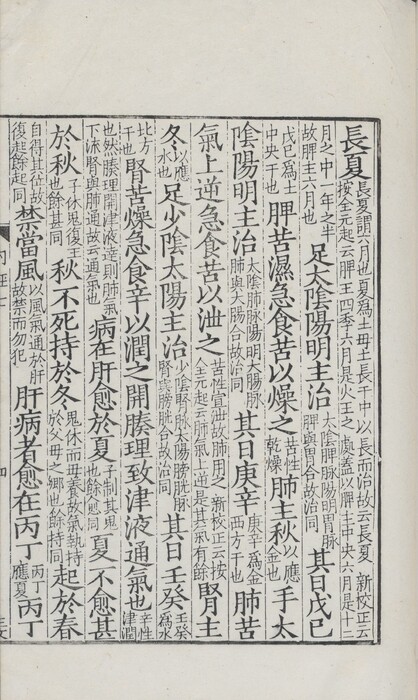 長夏長夏謂六月也夏為土母土長干中以長而治故云長夏新校正云按全元起云脾王四季六月是火王之處蓋以脾主中央六月是十二
月之中一年之半故脾主六月也足太陰陽明主治太陰脾脉陽明胃脉脾與胃合故治同其日戊己
戊己為土中央干也脾苦濕急食苦以燥之苦性乾燥肺主秋以應金也手太
陰陽明主治太陰肺脉陽明大腸脉肺與大腸合故治同其日庚辛庚辛為金西方干也肺苦
氣上逆急食苦以泄之苦性宣泄故肺用之新校正云按全元起云肺氣上逆是其氣有餘腎主
冬以應水也足少陰太陽主治少陰腎脉太陽膀胱脉腎與膀胱合故治同其日壬癸壬癸為水
北方干也腎苦燥急食辛以潤之開腠理致津液通氣也辛性津潤
也然腠理開津液達則肺氣下流腎與肺通故云通氣也病在肝愈於夏子制其鬼也餘愈同夏不愈甚
於秋子休鬼復王也餘甚同秋不死持於冬鬼休而母養故氣執持於父母之鄉也餘持同起於春
自得其位故復起餘起同禁當風以風氣通於肝故禁而勿犯肝病者愈在丙丁丙丁應夏丙丁